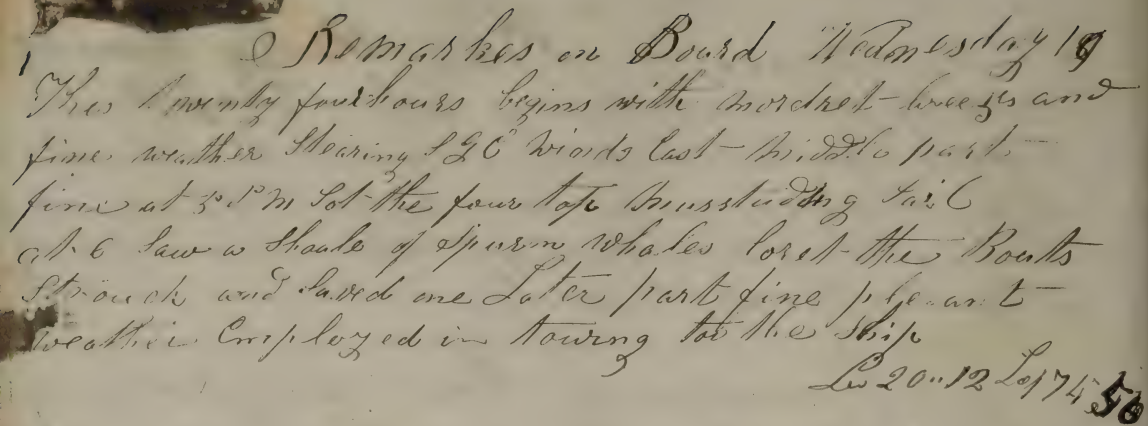 Remarkes on Board Wednesday 19
This twenty fourhours begins with mordret breezes and
fine weather Stearing S & E Winds East middle part
fine at 5 P M Sot the four top mus studding Sail
at 6 Saw a Shoale of Spurm Whales loret the Boats
Strouck and Saved one Later part fine pleasant
weather Employed in towing to the Ship
La 20" 12 Lo 174 56